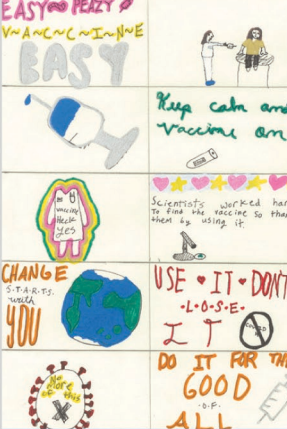 EASY PEAZY
V~A~C~C~I~N~E
EASY
Keep calm and
Vaccine on
vaccine
Heck
yes
Scientists worked har
To find the vaccine so tha
them by using it
CHANGE
S.T.A.R.T.S.
with
YOU
USE IT DON'T
L.O.S.E.
IT
DO IT FOR TH
GOOD
OF
ALL
No
More
of this